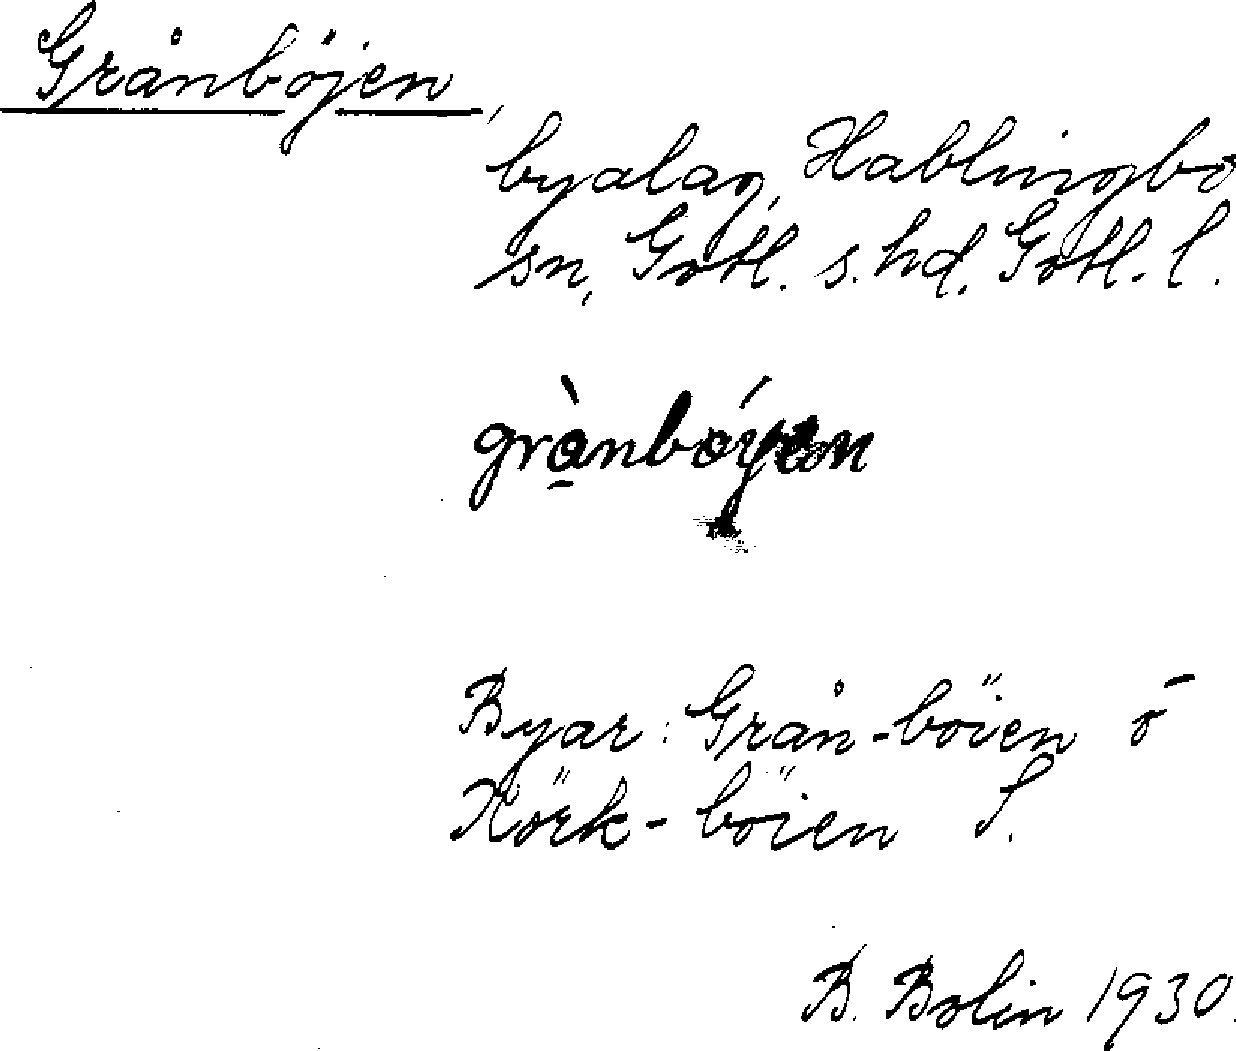 Grånböjen,
byalag, Hablingbo
sn, Gotl. s. hd. Gotl. l.
Byar: Grån-böien ō
Körk-böien S.
B. Bolin 1930.